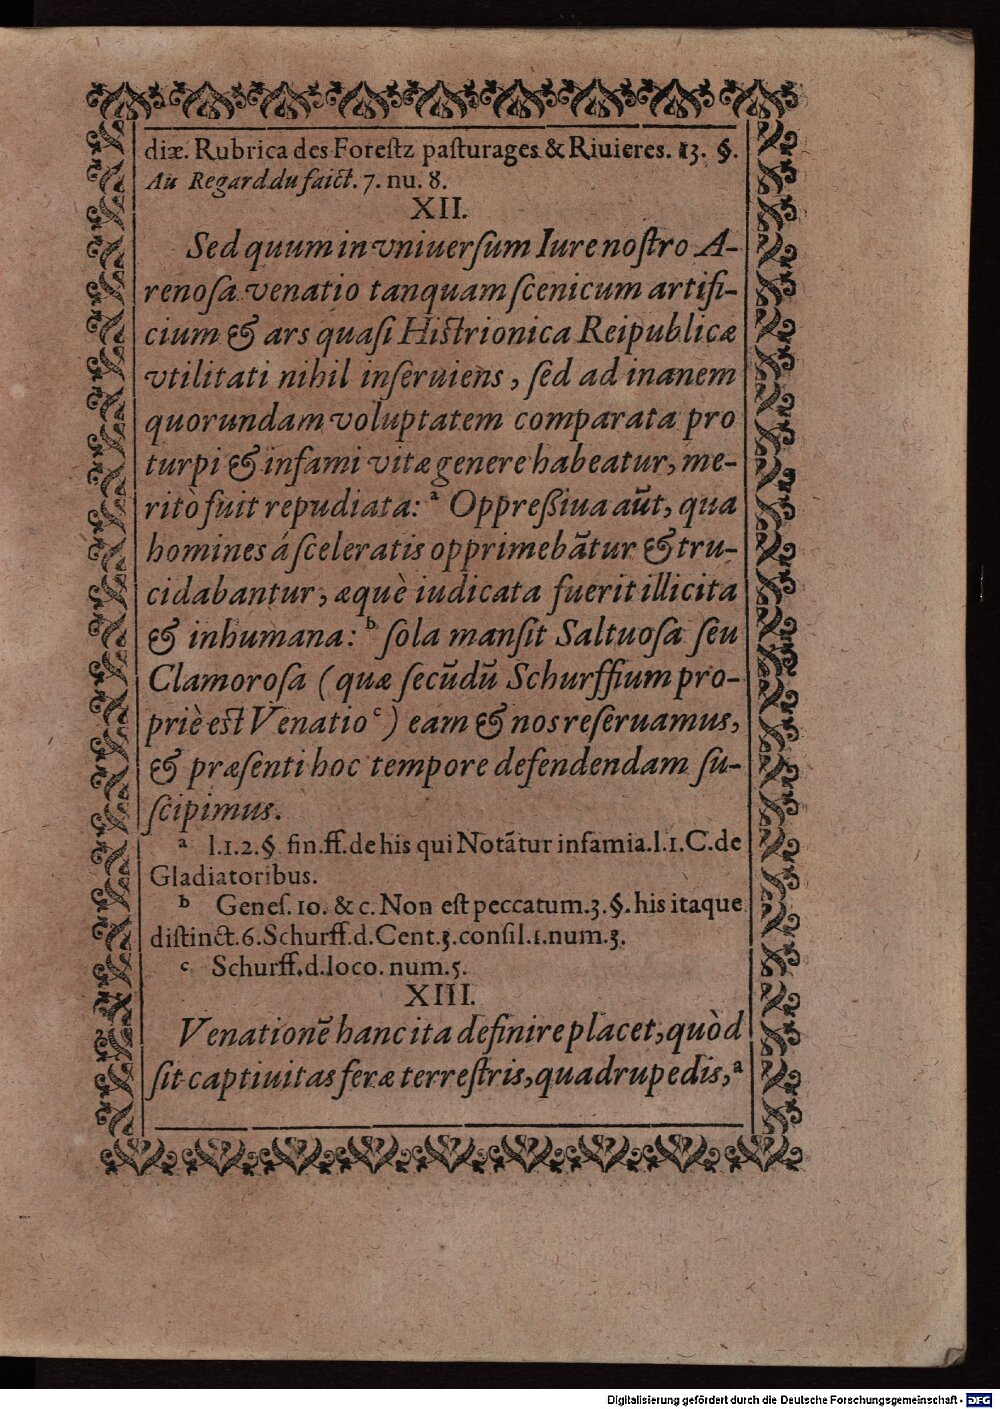 diæ. Rubrica des Foreſtz paſturages & Riuieres. 13. §.
Au Regard du faict. 7. nu. 8.
XII.
Sed quum in vniuerſum Iure noſtro A-
renoſa venatio tanquam ſcenicum artifi-
cium & ars quaſi Histrionica Reipublicæ
vtilitati nihil inſeruiens, ſed ad inanem
quorundam voluptatem comparata pro
turpi & infami vitæ genere habeatur, me-
ritò fuit repudiata: a Oppreßiua aūt, qua
homines á ſceleratis opprimebātur & tru-
cidabantur, æquè iudicata fuerit illicita
& inhumana: b ſola manſit Saltuoſa ſeu
Clamoroſa (quæ ſecūdū Schurffium pro-
priè est Venatio c) eam & nos reſeruamus,
& præſenti hoc tempore defendendam ſu-
ſcipimus.
a l.1.2.§ fin.ff.de his qui Notātur infamia.l.1.C.de
Gladiatoribus.
b Geneſ. 10. & c. Non eſt peccatum.3.§.his itaque
diſtinct.6.Schurff.d.Cent.3.conſil.1.num.3.
c Schurff.d.loco. num.5.
XIII.
Venationē hanc ita definire placet, quòd
ſit captiuitas feræ terreſtris, quadrupedis, a
Digitalisierung gefördert durch die Deutsche Forschungsgemeinschaft - DFG